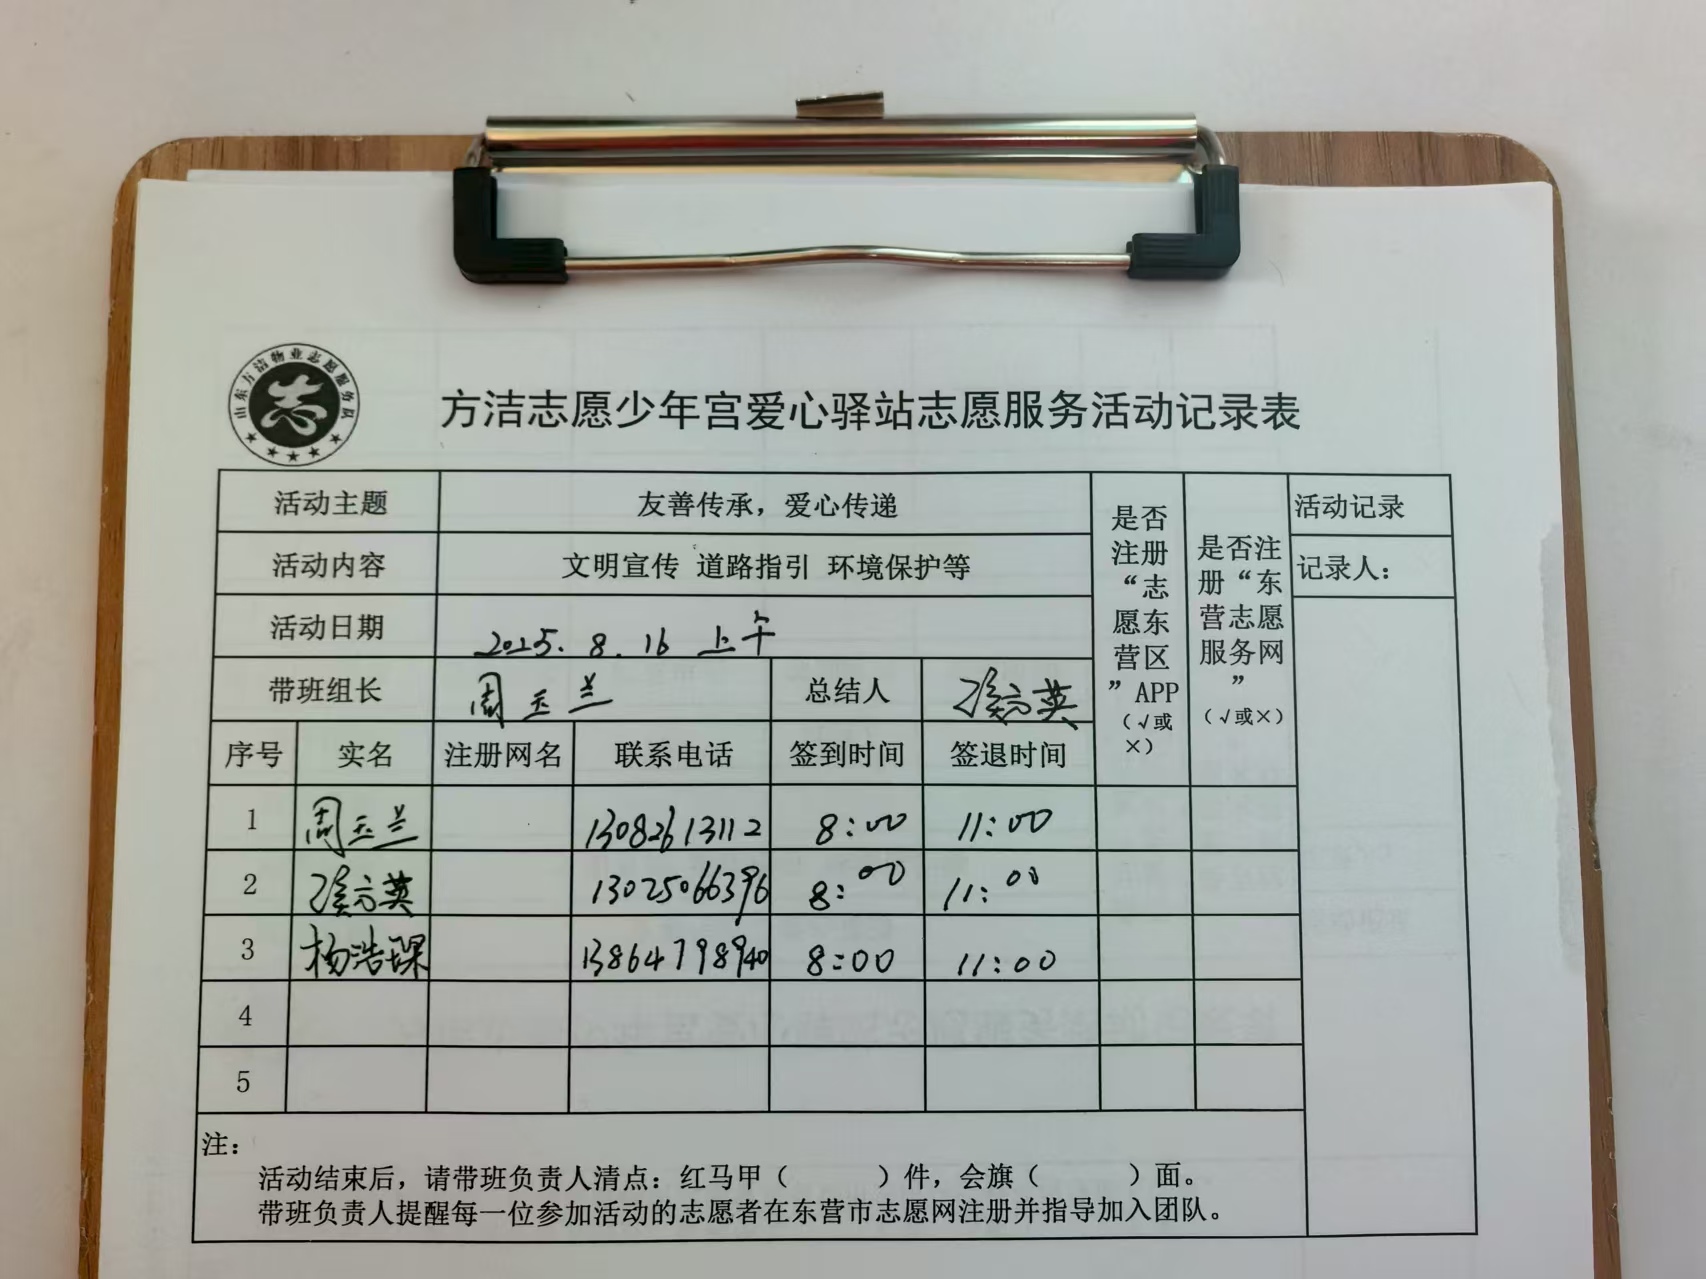 山东方洁物业志愿服务队
志
方洁志愿少年宫爱心驿站志愿服务活动记录表
活动主题 友善传承，爱心传递
活动内容 文明宣传 道路指引 环境保护等
活动日期 2025.8.16 上午
带班组长 周玉兰 总结人
是否注册“志愿东营区”APP（√或×）
是否注册“东营志愿服务网”（√或×）
活动记录
记录人：
序号 实名 注册网名 联系电话 签到时间 签退时间
1 周玉兰 13082613112 8:00 11:00
2 13025066396 8:00 11:00
3 杨浩琛 13864798940 8:00 11:00
4
5
注：
活动结束后，请带班负责人清点：红马甲（ ）件，会旗（ ）面。
带班负责人提醒每一位参加活动的志愿者在东营市志愿网注册并指导加入团队。